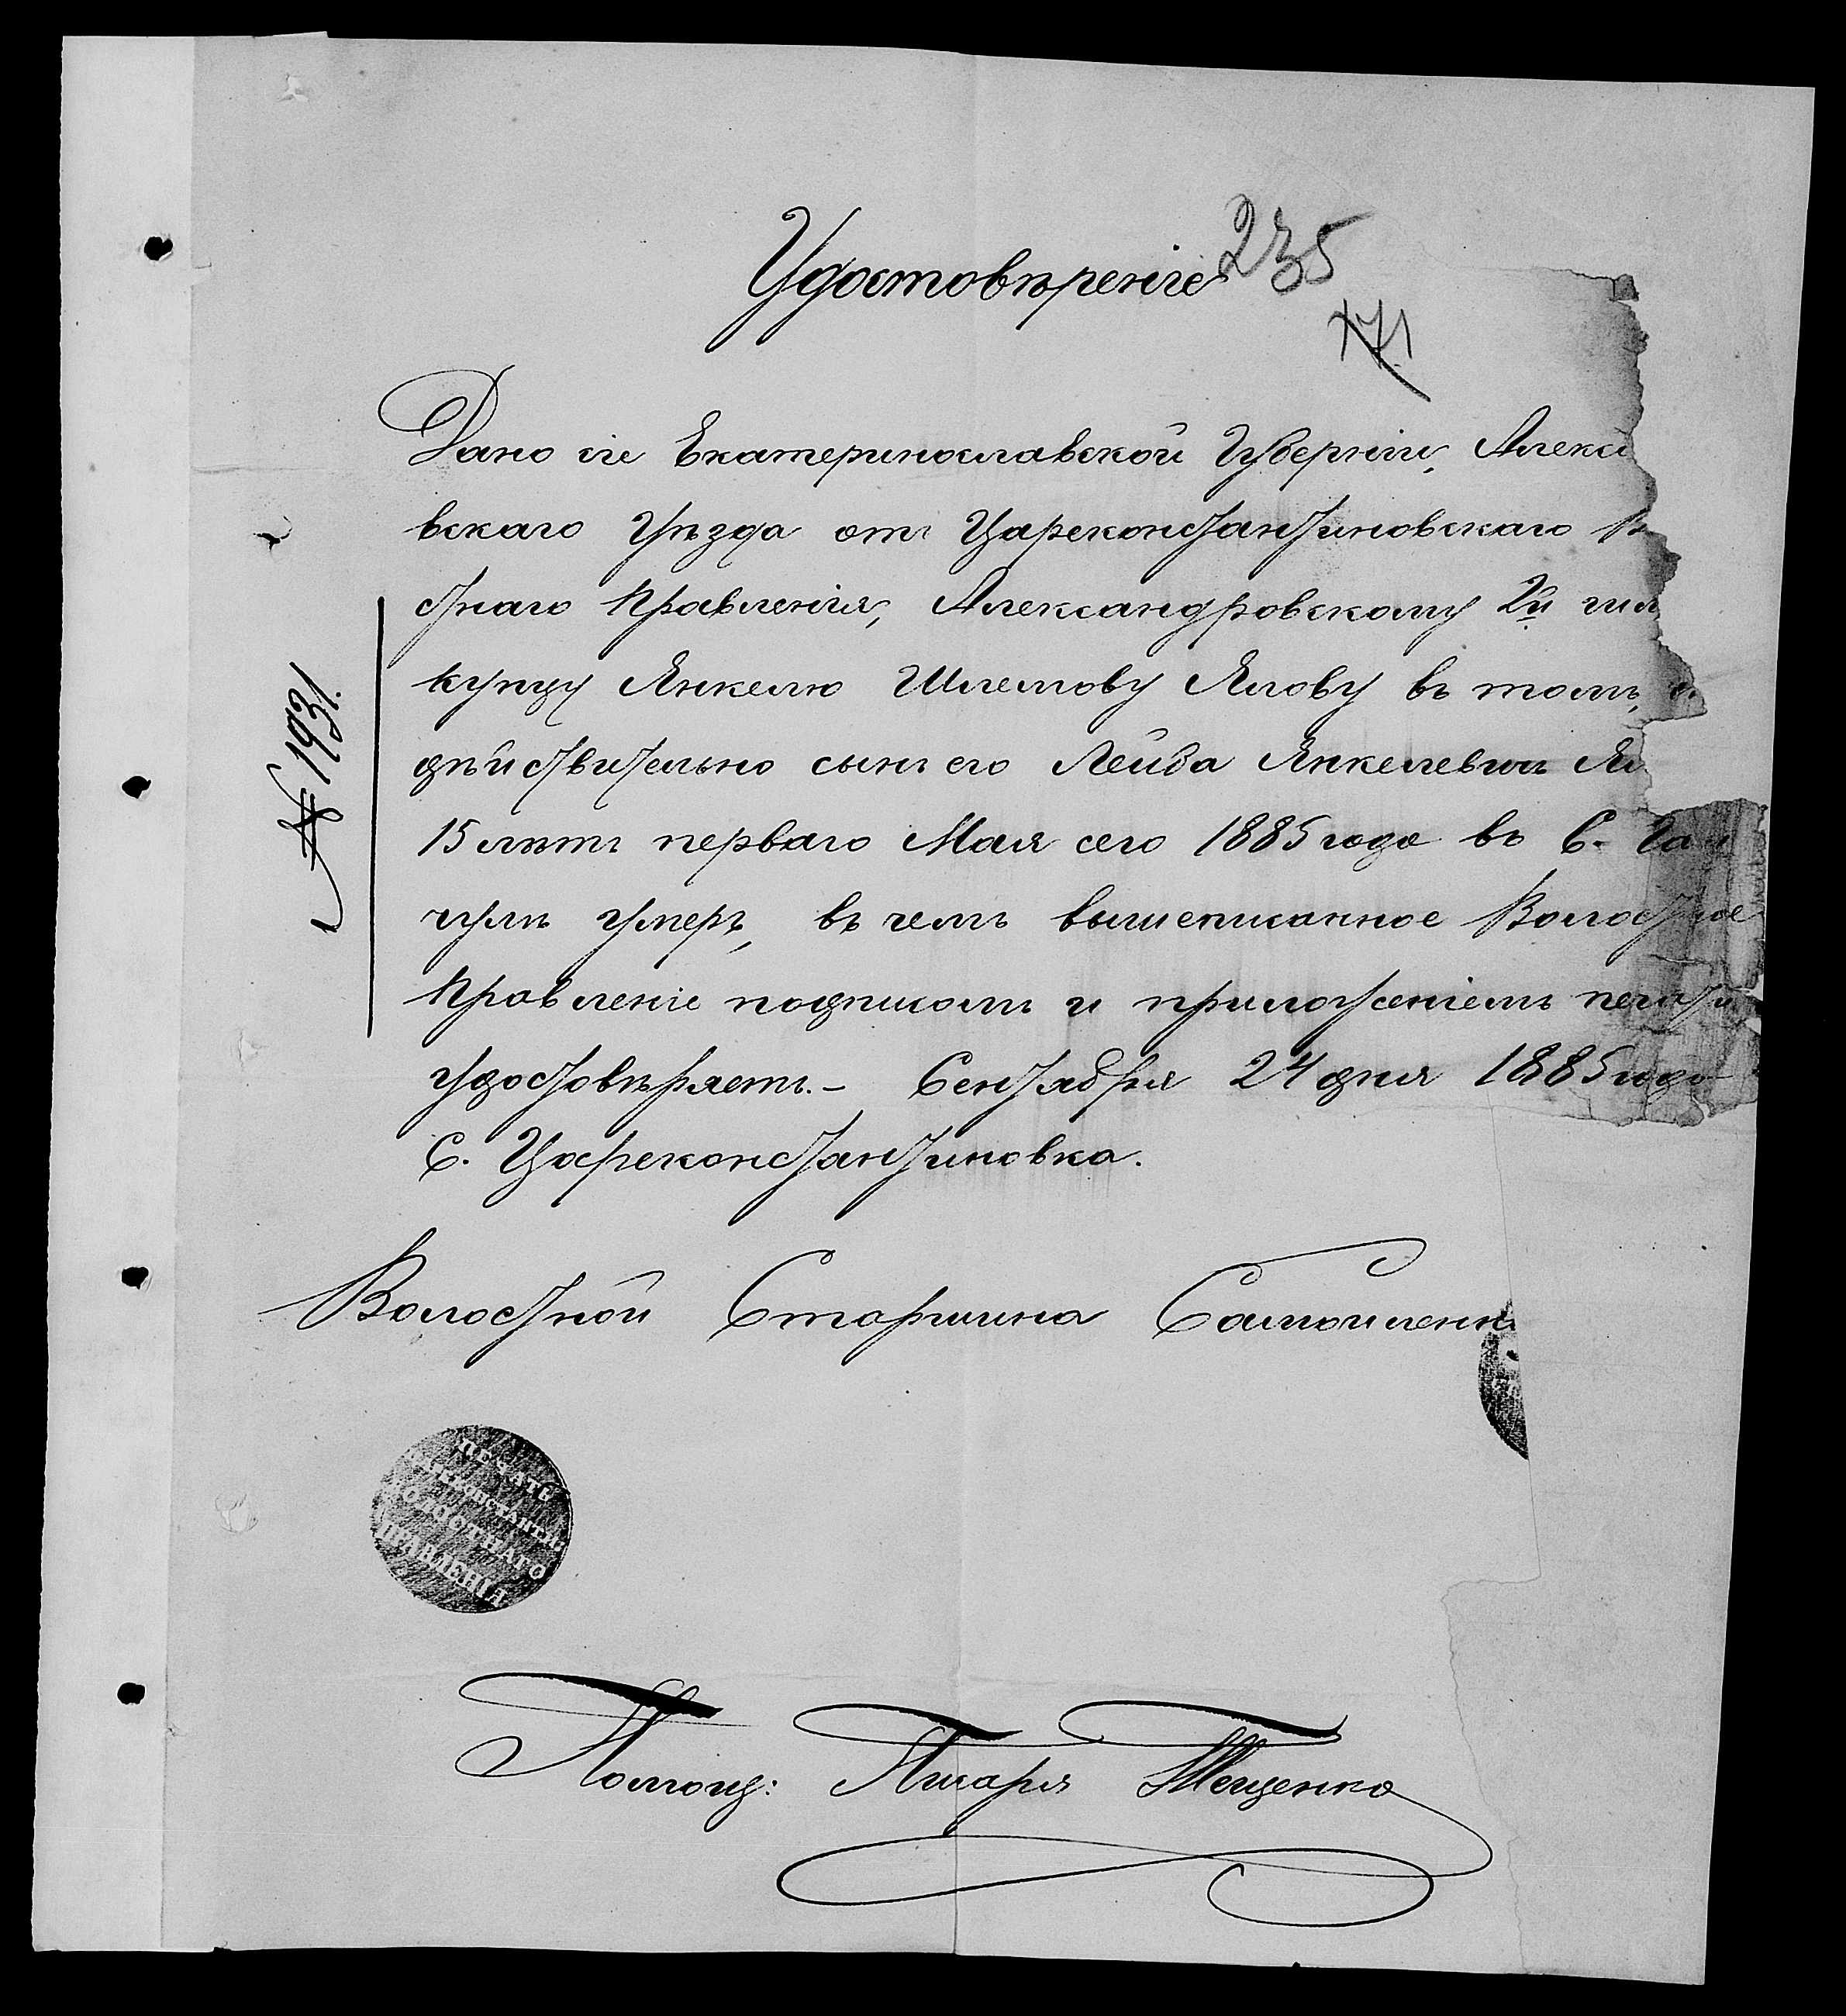 Удостовѣреніе
235
171
Дано сіе Екатеринославской Губерніи, Алекса
вскаго Уѣзда отъ Цареконстантиновскаго
стнаго Правленія, Александровскому 2й гил
купцу Янкелю Шлемову Ялову въ томъ,
дѣйствительно сынъ его Лейба Янкелевичъ Ял
15 лѣтъ перваго Мая сего 1885 года въ С.
чулѣ умеръ, въ чемъ вышеписанное Волостное
Правленіе подписомъ и приложеніемъ печати
удостовѣряетъ.- Сентября 24 дня 1885 года
С. Цареконстантиновка.
№ 1931.
Волостной Старшина Самойленко
ПЕЧАТЬ
ЦАРЕКОНСТАНТИН.
ВОЛОСТНАГО
ПРАВЛЕНІЯ
Помощ: Писаря Тещенко